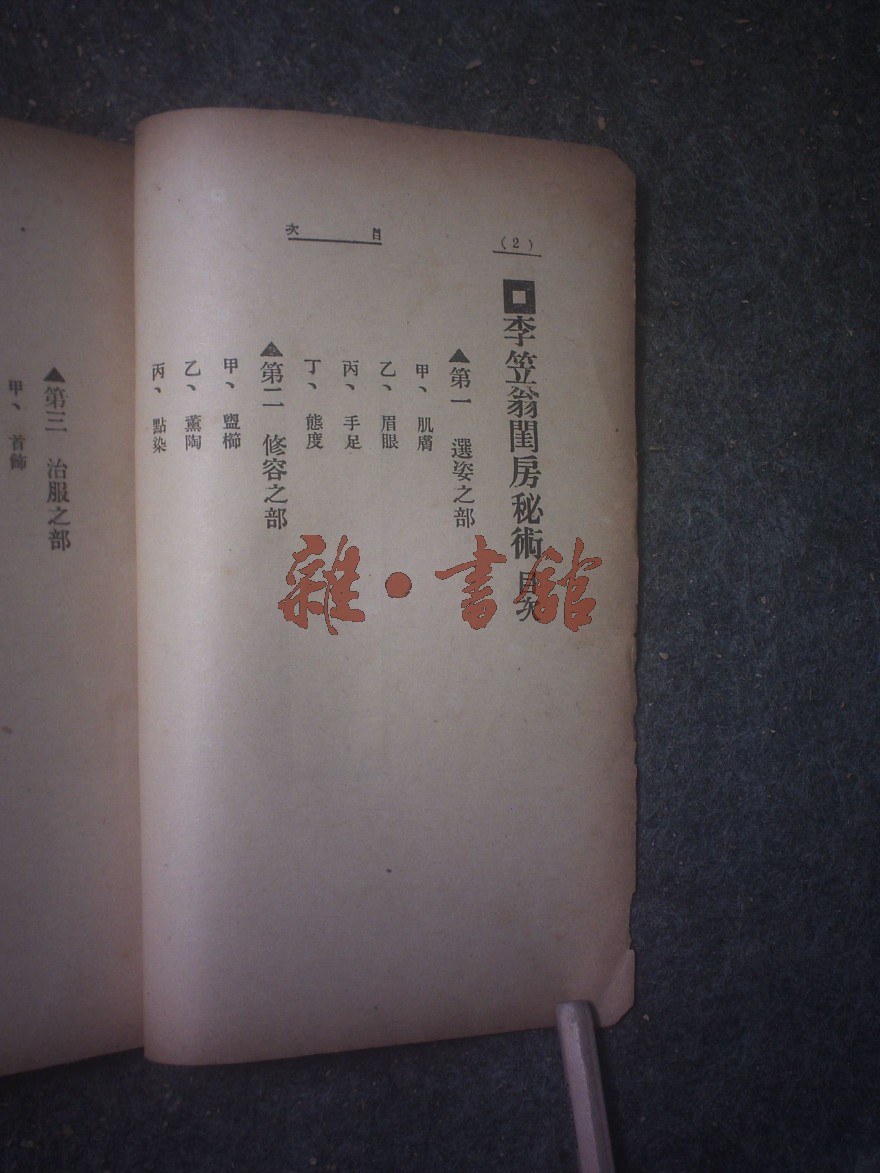 (2)
目次
李笠翁閨房秘術 目次
▲第一 選姿之部
甲、肌膚
乙、眉眼
丙、手足
丁、態度
▲第二 修容之部
甲、盥櫛
乙、薰陶
丙、點染
▲第三 治服之部
甲、首飾
雜·書館